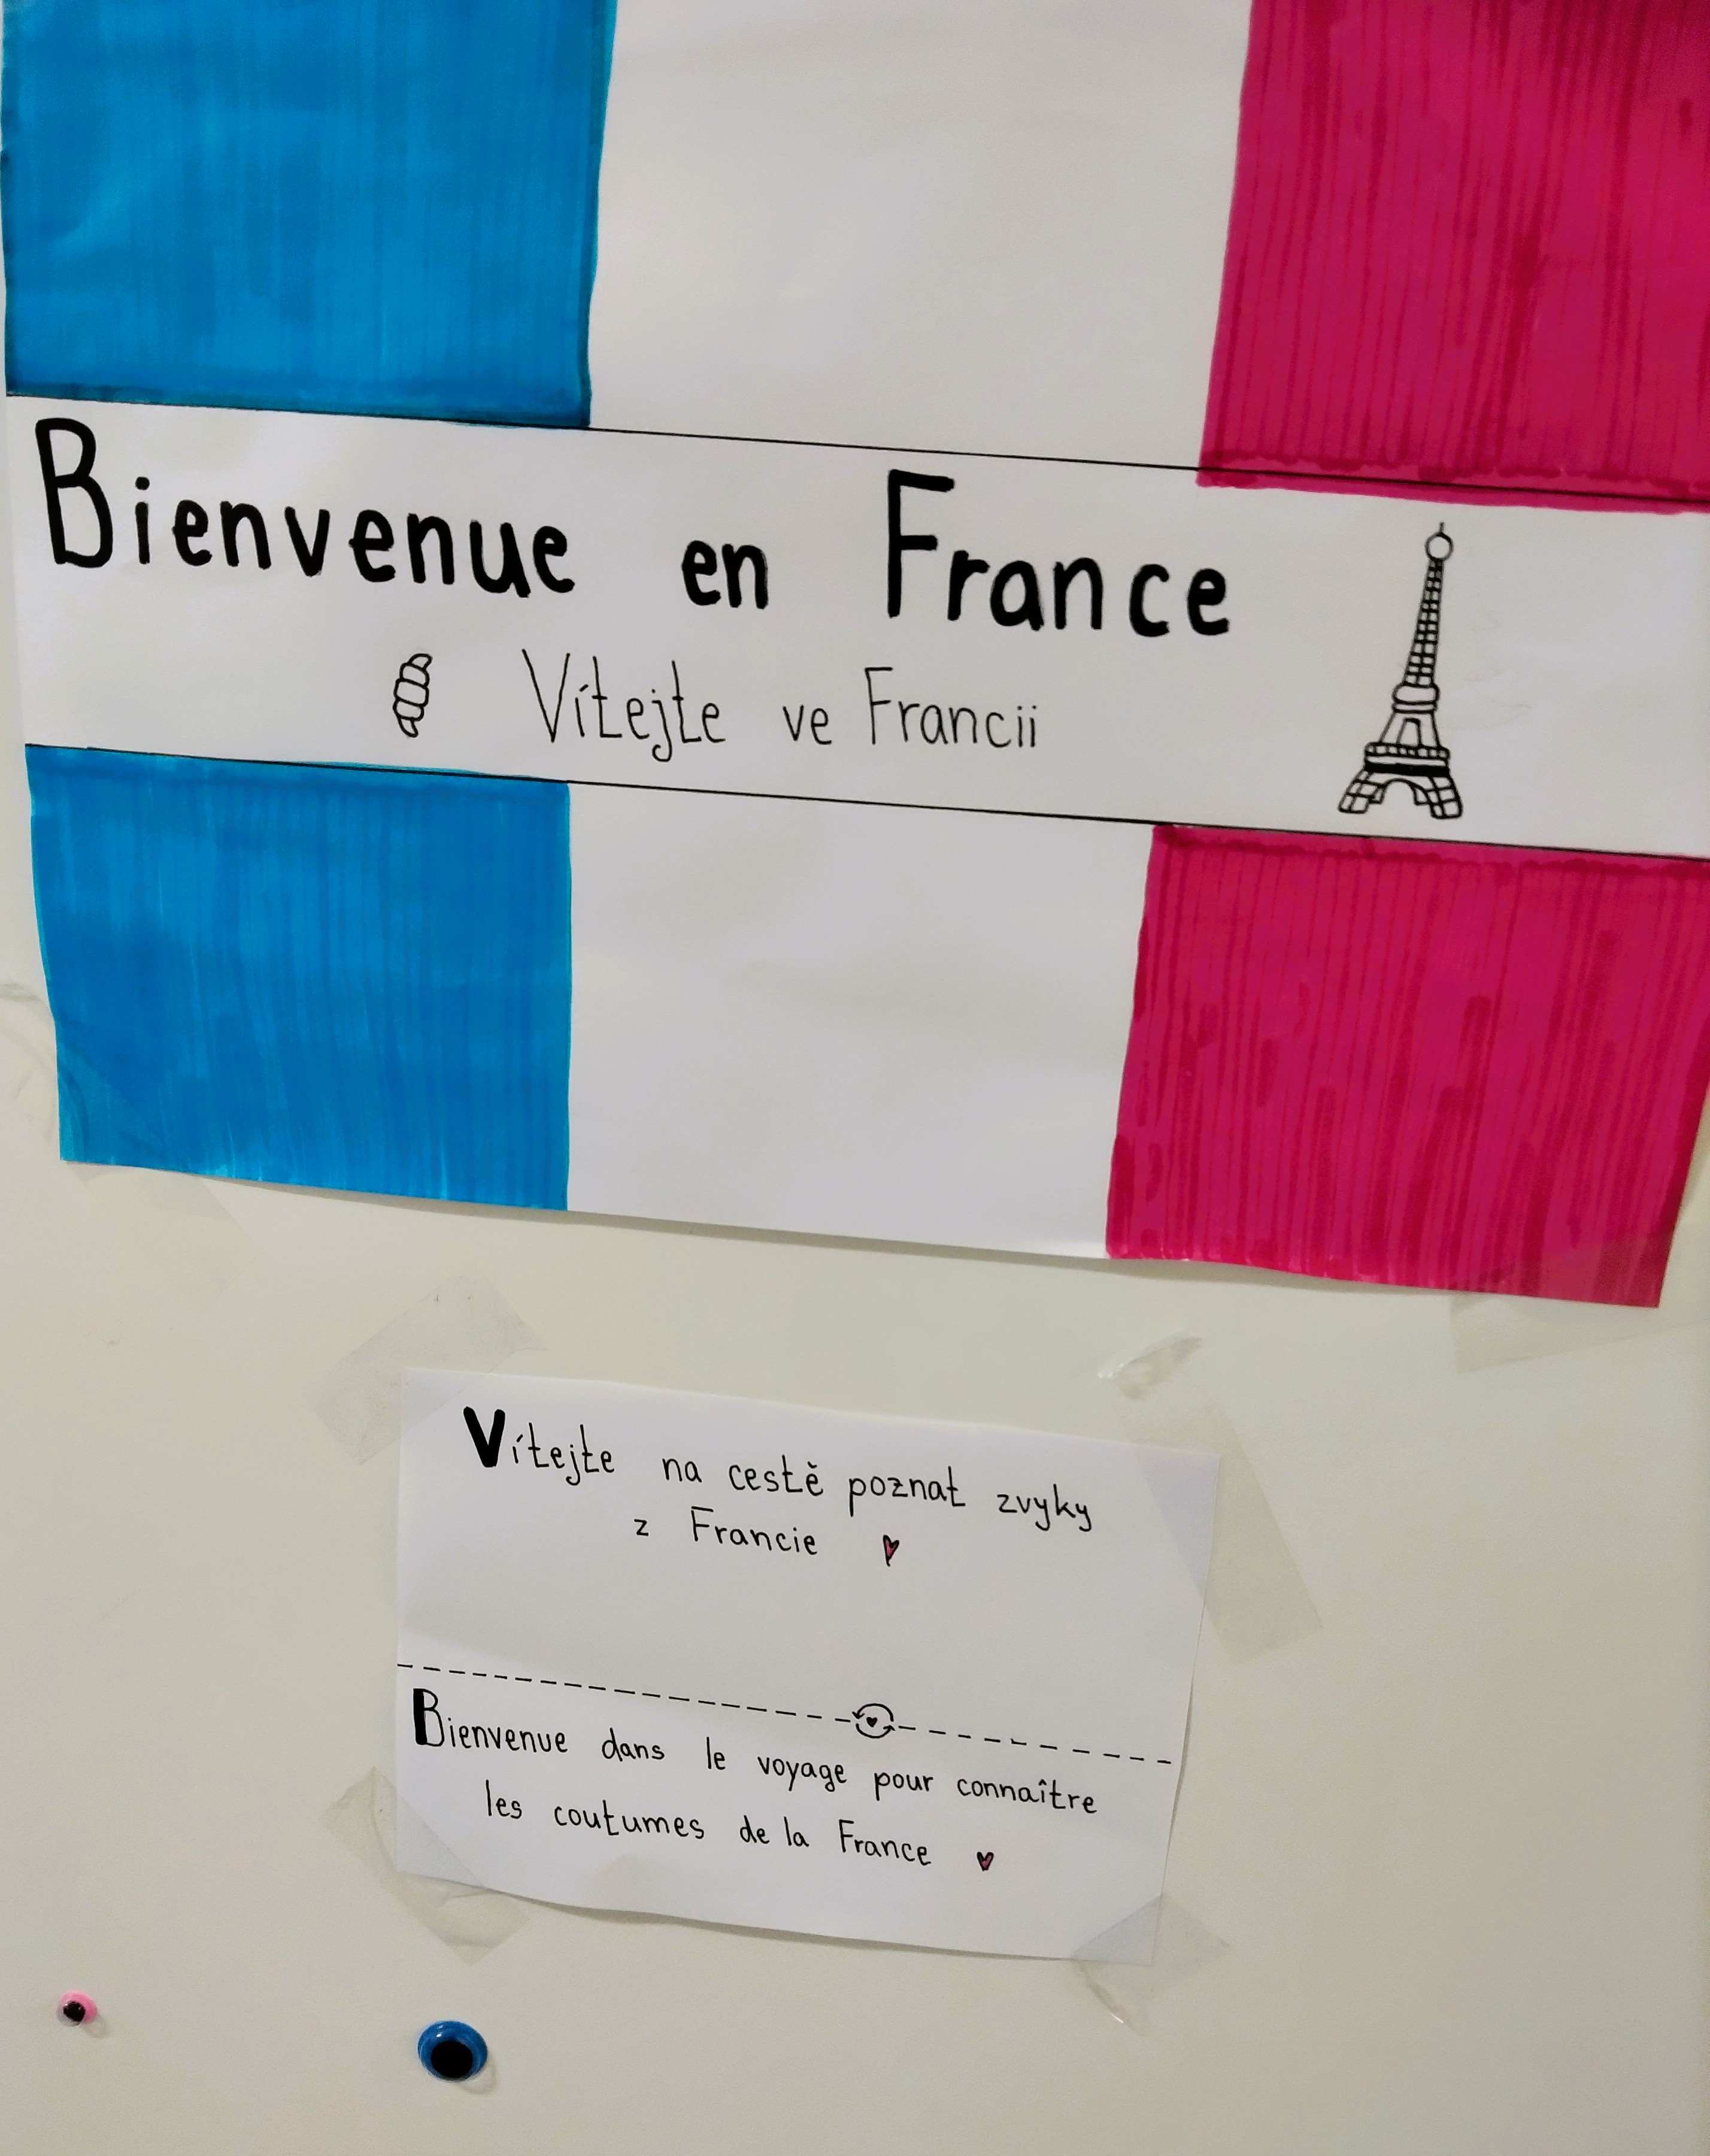 Bienvenue en France
Vítejte ve Francii
Vítejte na cestě poznat zvyky
z Francie
Bienvenue dans le voyage pour connaître
les coutumes de la France